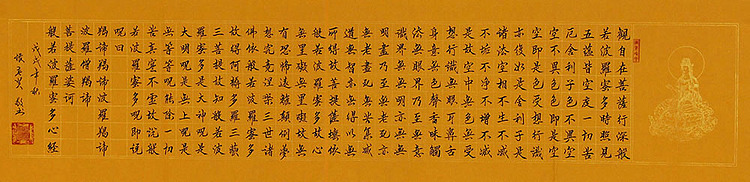 觀自在菩薩行深般
若波羅蜜多時照見
五蘊皆空度一切苦
厄舍利子色不異空
空不異色色即是空
空即是色受想行識
亦復如是舍利子是
諸法空相不生不滅
不垢不淨不增不減
是故空中無色無受
想行識無眼耳鼻舌
身意無色聲香味觸
法無眼界乃至無意
識界無無明亦無無
明盡乃至無老死亦
無老死盡無苦集滅
道無智亦無得以無
所得故菩提薩埵依
般若波羅蜜多故心
無罣礙無罣礙故無
有恐怖遠離顛倒夢
想究竟涅槃三世諸
佛依般若波羅蜜多
故得阿耨多羅三藐
三菩提故知般若波
羅蜜多是大神呪是
大明呪是無上呪是
無等等呪能除一切
苦真實不虛故說般
若波羅蜜多呪即說
呪曰
揭諦揭諦波羅揭諦
波羅僧揭諦
菩提薩婆訶
般若波羅蜜多心經
戊戌年秋
敬書